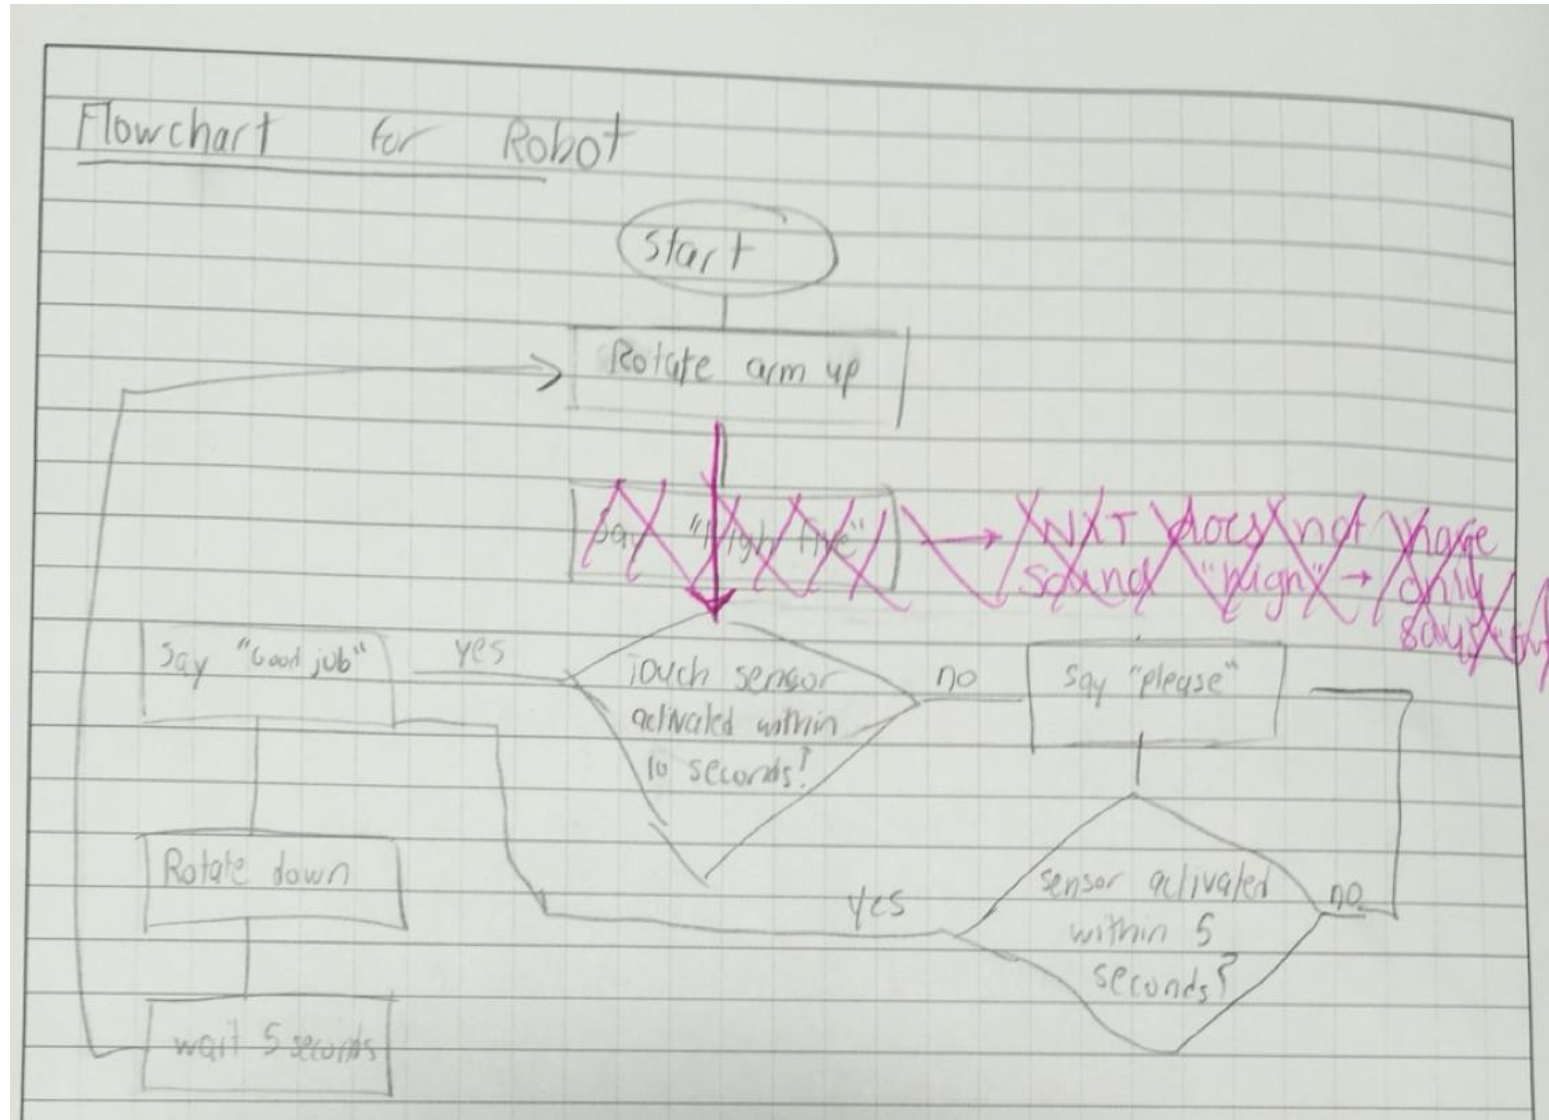 Flowchart for Robot
Start
Rotate arm up
Say "High five" → NXT does not have
sound "high" → only
says
Say "Good job"
yes
Touch sensor
activated within
10 seconds?
no
Say "please"
Rotate down
yes
sensor activated
within 5
seconds?
no
wait 5 seconds